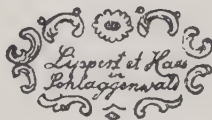 Lippert et Haas
in
Schlaggenwald